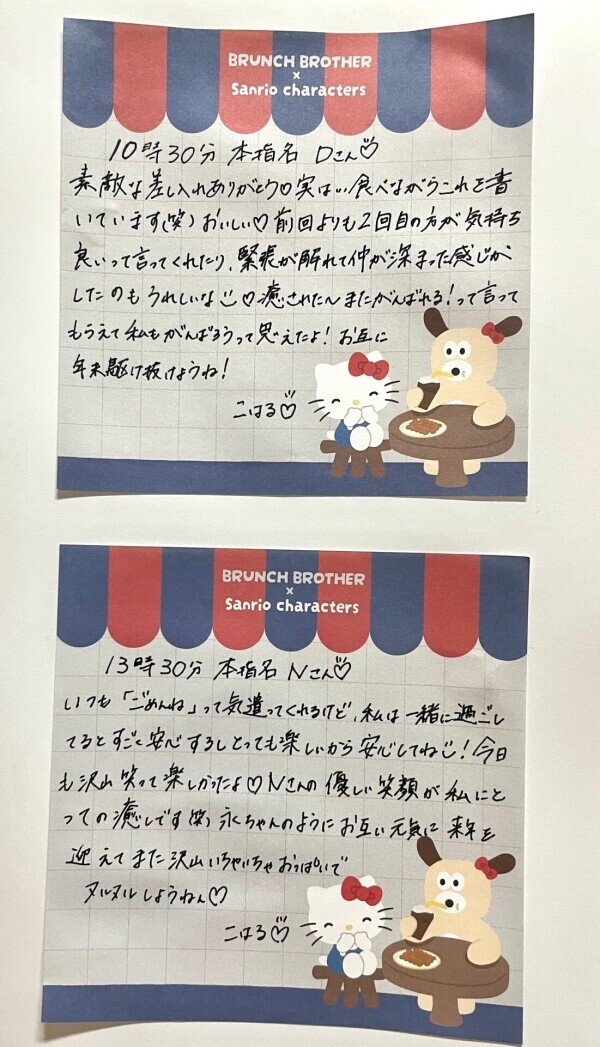 BRUNCH BROTHER
×
Sanrio characters
10時30分 本指名 Dさん♡
素敵な差し入れありがとう♡実は…食べながらこれを書
いています(笑) おいしい♡前回よりも2回目の方が気持ち
良いって言ってくれたり、緊張が解れて仲が深まった感じが
したのもうれしいな♡癒された〜またがんばれる!って言って
もらえて私もがんばろうって思えたよ!お互に
年末駆け抜けようね!
こはる♡
BRUNCH BROTHER
×
Sanrio characters
13時30分 本指名 Nさん♡
いつも「ごめんね」って気遣ってくれるけど、私は一緒に過ごし
てるとすごく安心するしとっても楽しいから安心してね!今日
も沢山笑って楽しかったよ♡Nさんの優しい笑顔が私にと
っての癒しです(笑) 永ちゃんのようにお互い元気に来年を
迎えてまた沢山いちゃいちゃおっぱいで
ヌルヌルしようねん♡
こはる♡